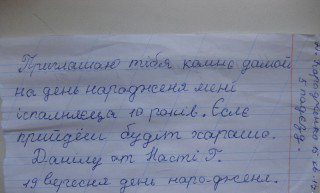 Приглашаю тібя камнє дамой
на день народженя мені
ісполняєца 10 років. Єслє
прийдеш будіт харашо.
Данілу от Насті Г.
19 вересня день народженя.